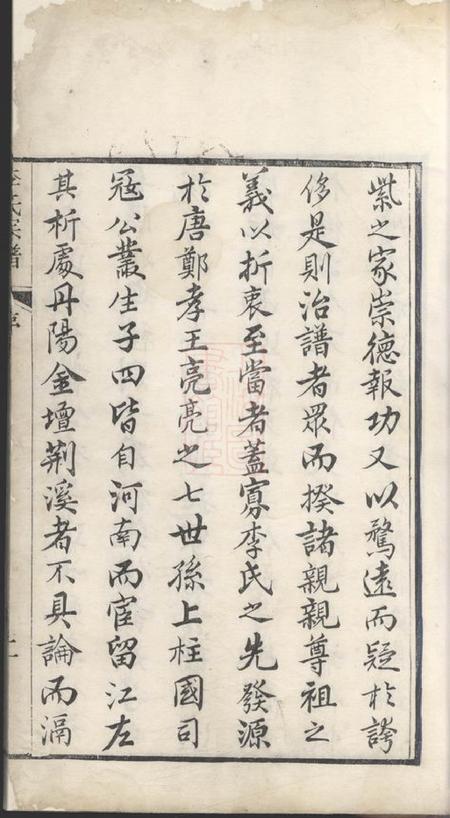 紫之家崇德報功又以騖遠而疑於誇
侈是則治譜者眾而揆諸親親尊祖之
義以折衷至當者蓋寡李氏之先發源
於唐鄭孝王亮亮之七世孫上柱國司
冠公叢生子四皆自河南而宦留江左
其析處丹陽金壇荆溪者不具論而滆
李氏家譜